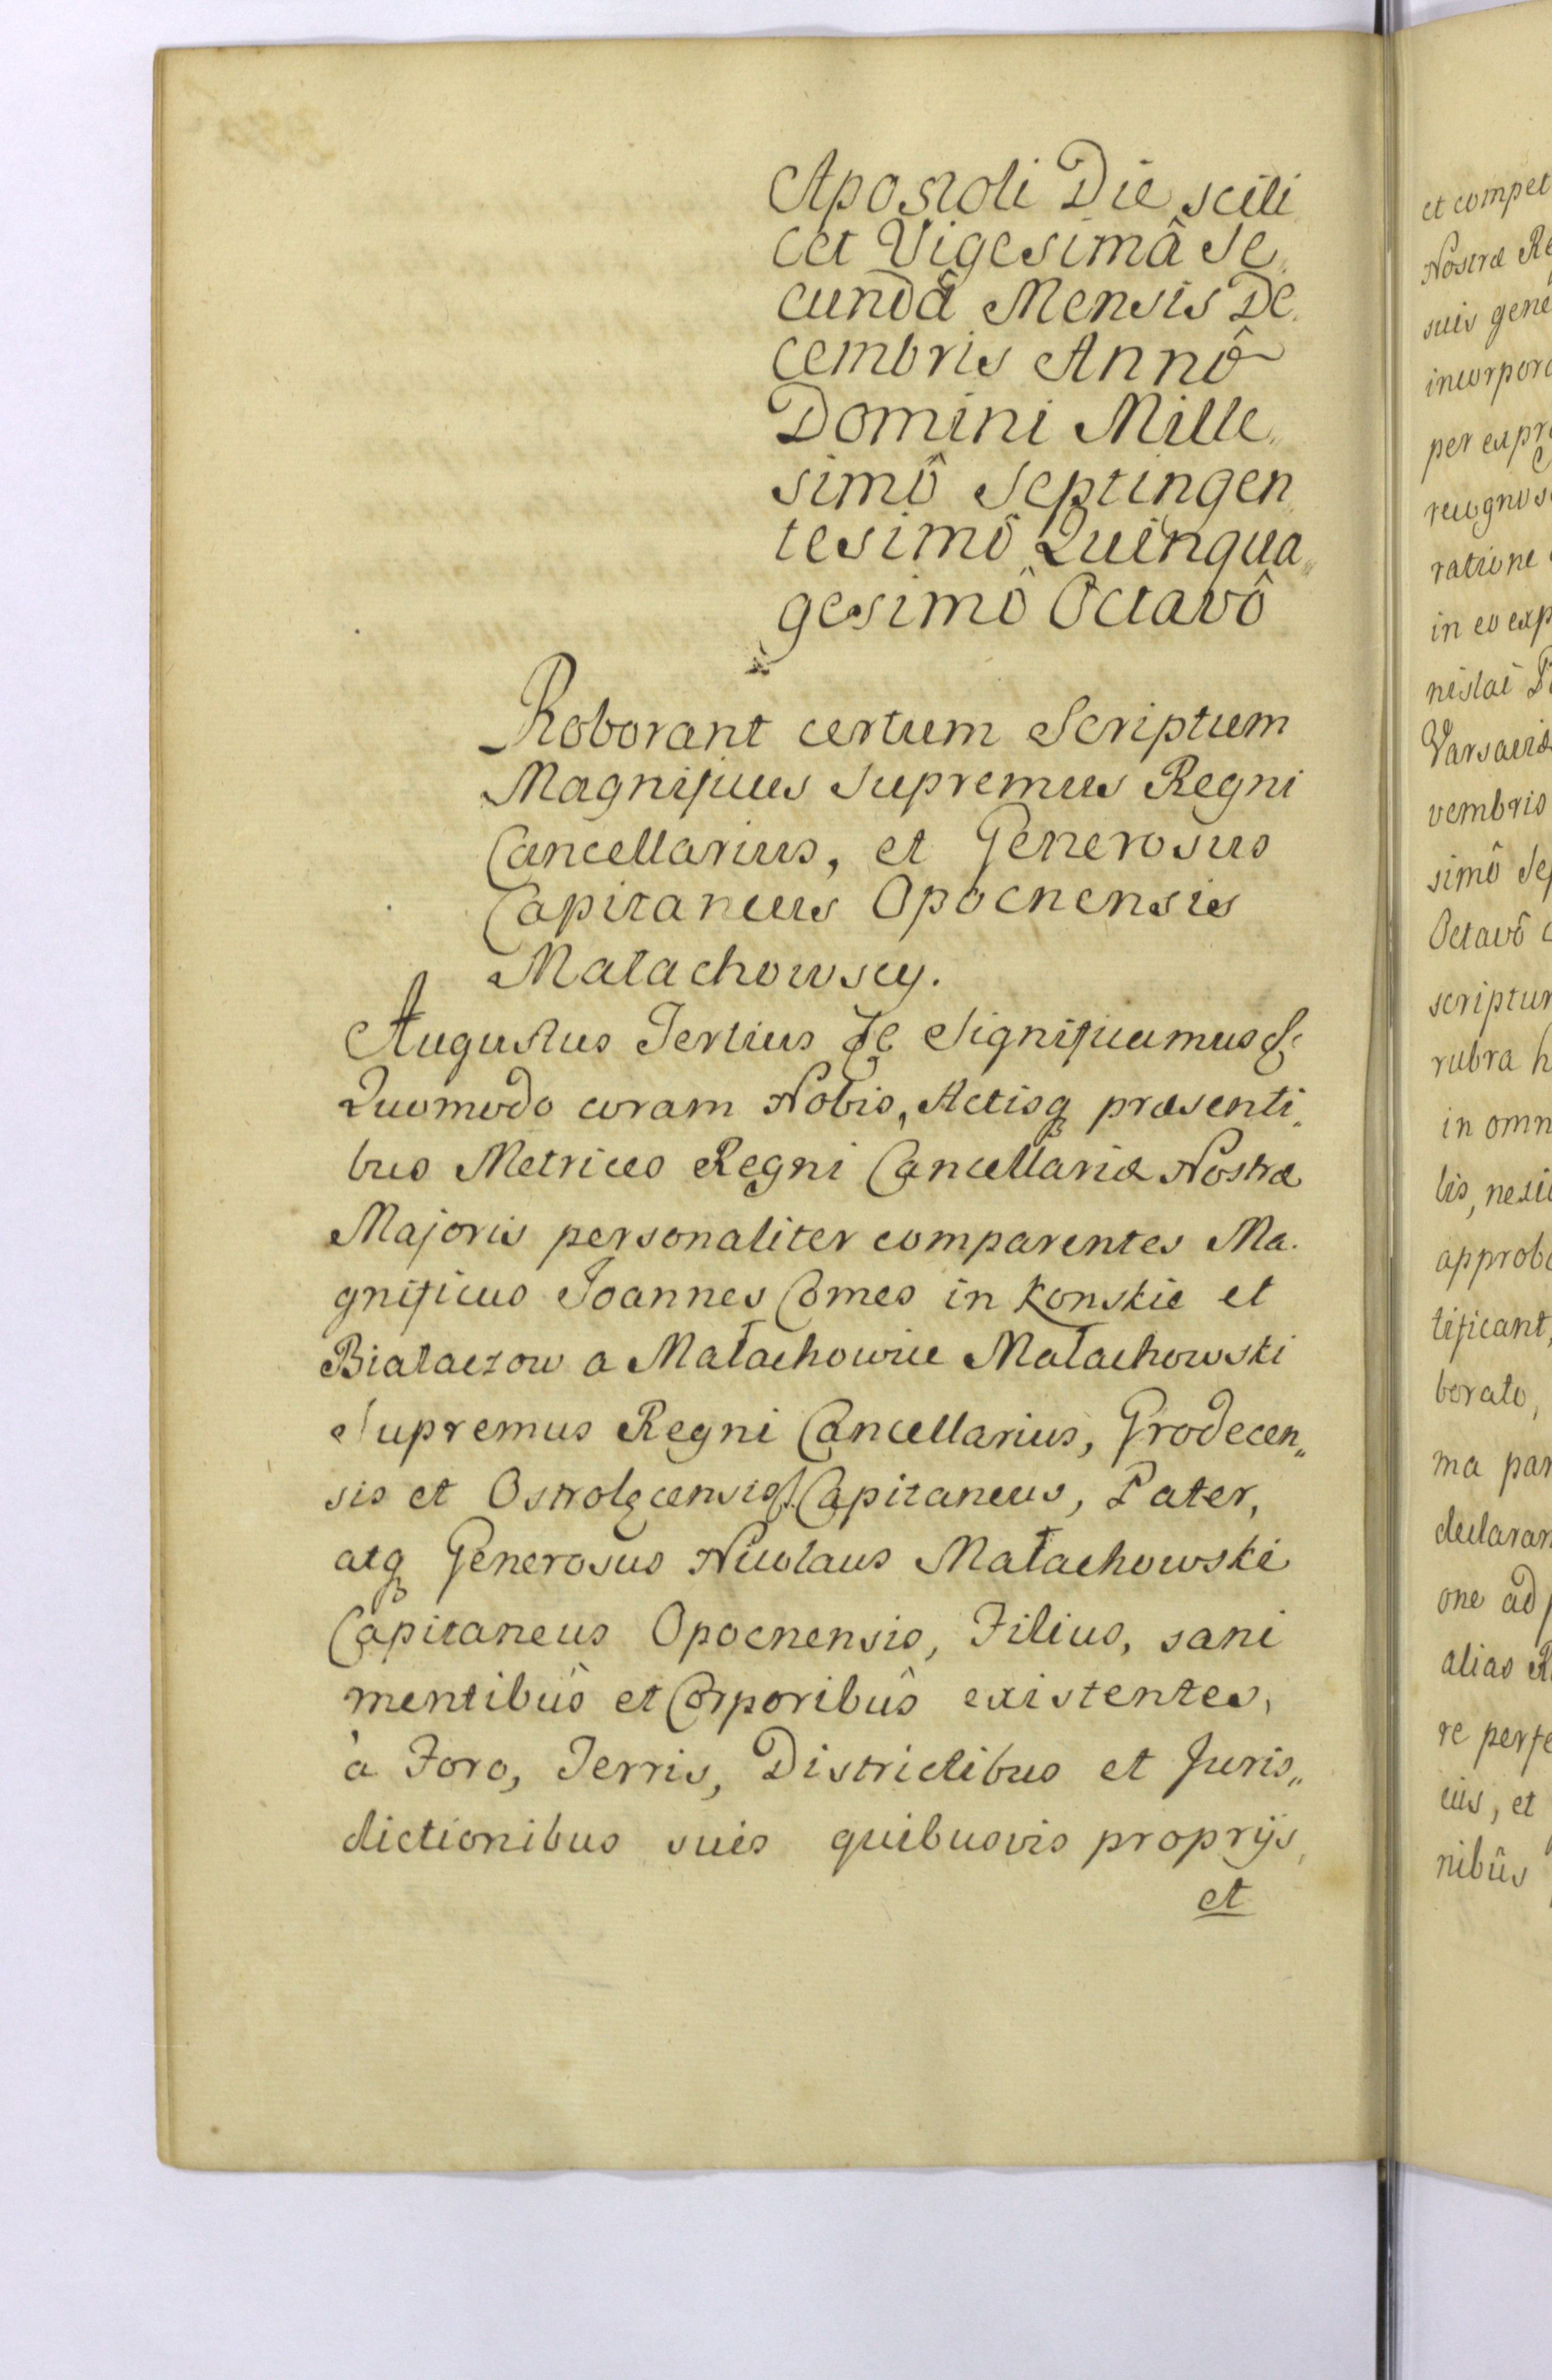 Apostoli Die scili
cet Vigesimâ Se,
cundâ Mensis De,
cembris Annô
Domini Mille,,
simô Septingen,,
tesimô Quinqua,,
gesimô Octavô
Roborant certum Scriptum
Magnificus Supremus Regni
Cancellarius, et Generosus
Capitaneus Opocnensis
Małachowscy.
Augustus Tertius &c Significamus &c
Quomodo coram Nobis, Actisq præsenti,,
bus Metrices Regni Cancellariæ Nostræ
Majoris personaliter comparentes Ma.
gnificus Joannes Comes in Konskie et
Białaczow a Małachowice Małachowski
Supremus Regni Cancellarius, Grodecen,,
sis et Ostrolęcensis Capitaneus, Pater,
atq Generosus Nicolaus Małachowski
Capitaneus Opocnensis, Filius, sani
mentibûs et Corporibûs existentes,
à Foro, Terris, Districtibus et Juris,,
dictionibus suis quibusvis proprijs,
et
et compet
Nostræ Re
suis gene
incorpora
per expre
recognos
ratione
in eo exp
nislai
Varsaviæ
vembris
simô Sep
Octavô
scriptum
rubra h
in omn
lis, nexi
approba
tificant,
borato,
ma par
declaran
one ad
alias R
re perfe
cũs, et
nibûs